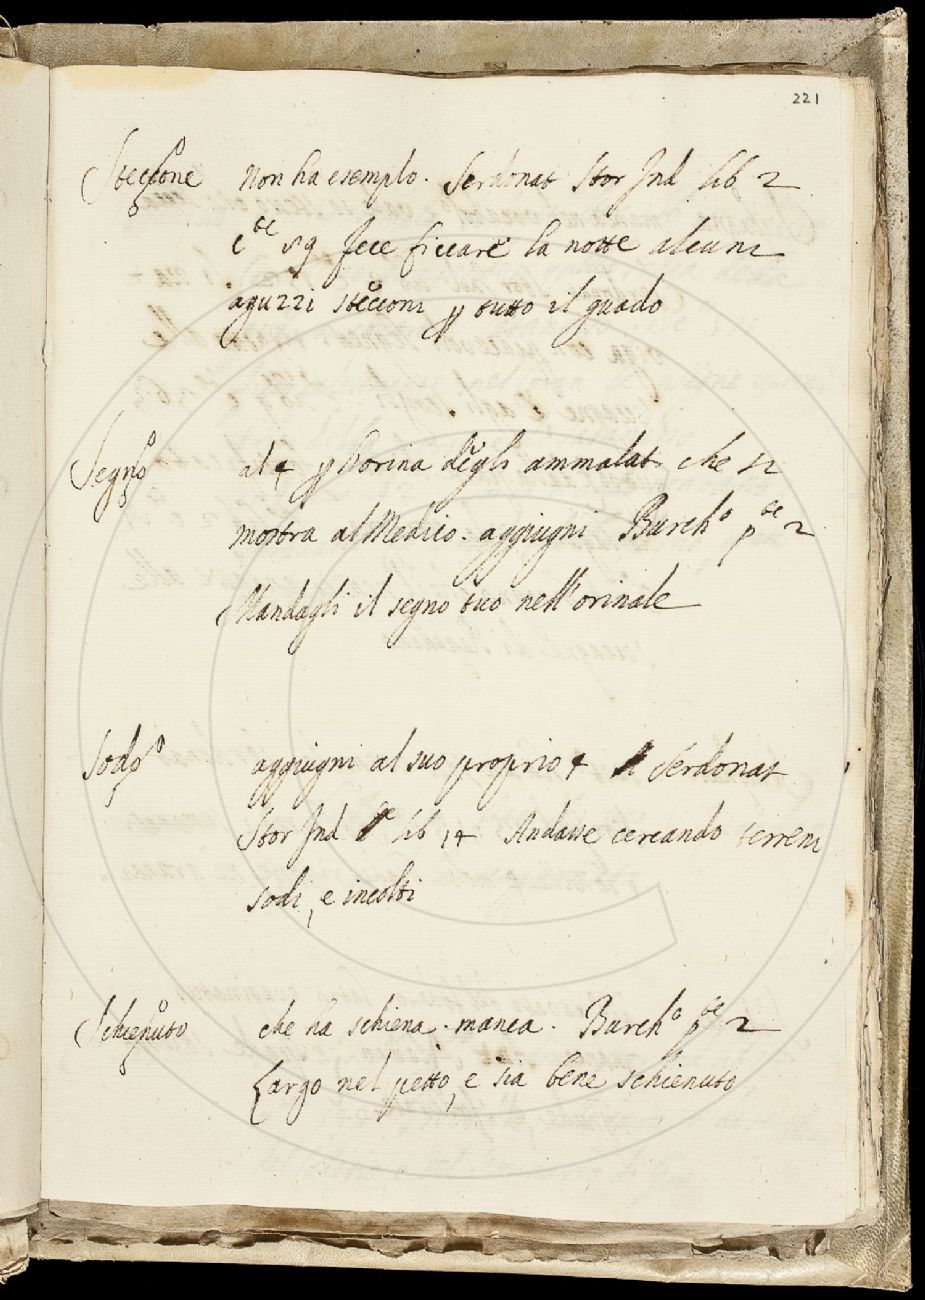 221
Steccone Non ha esemplo. Serdonat Stor Ind lib 2
c te 59 fece ficcare la notte alcuni
aguzzi stecconi p tutto il guado
Segno al 4 p l'orina degli ammalati che si
mostra al Medico. aggiugni Burch o p te 2
Mandagli il segno tuo nell'orinale
Sodo aggiugni al suo proprio 4 Serdonat
Stor Ind lib 14 Andasse cercando terreni
sodi, e incolti
Schienuto che ha schiena. manca. Burch o p te 2
Largo nel petto, e sia bene schienuto